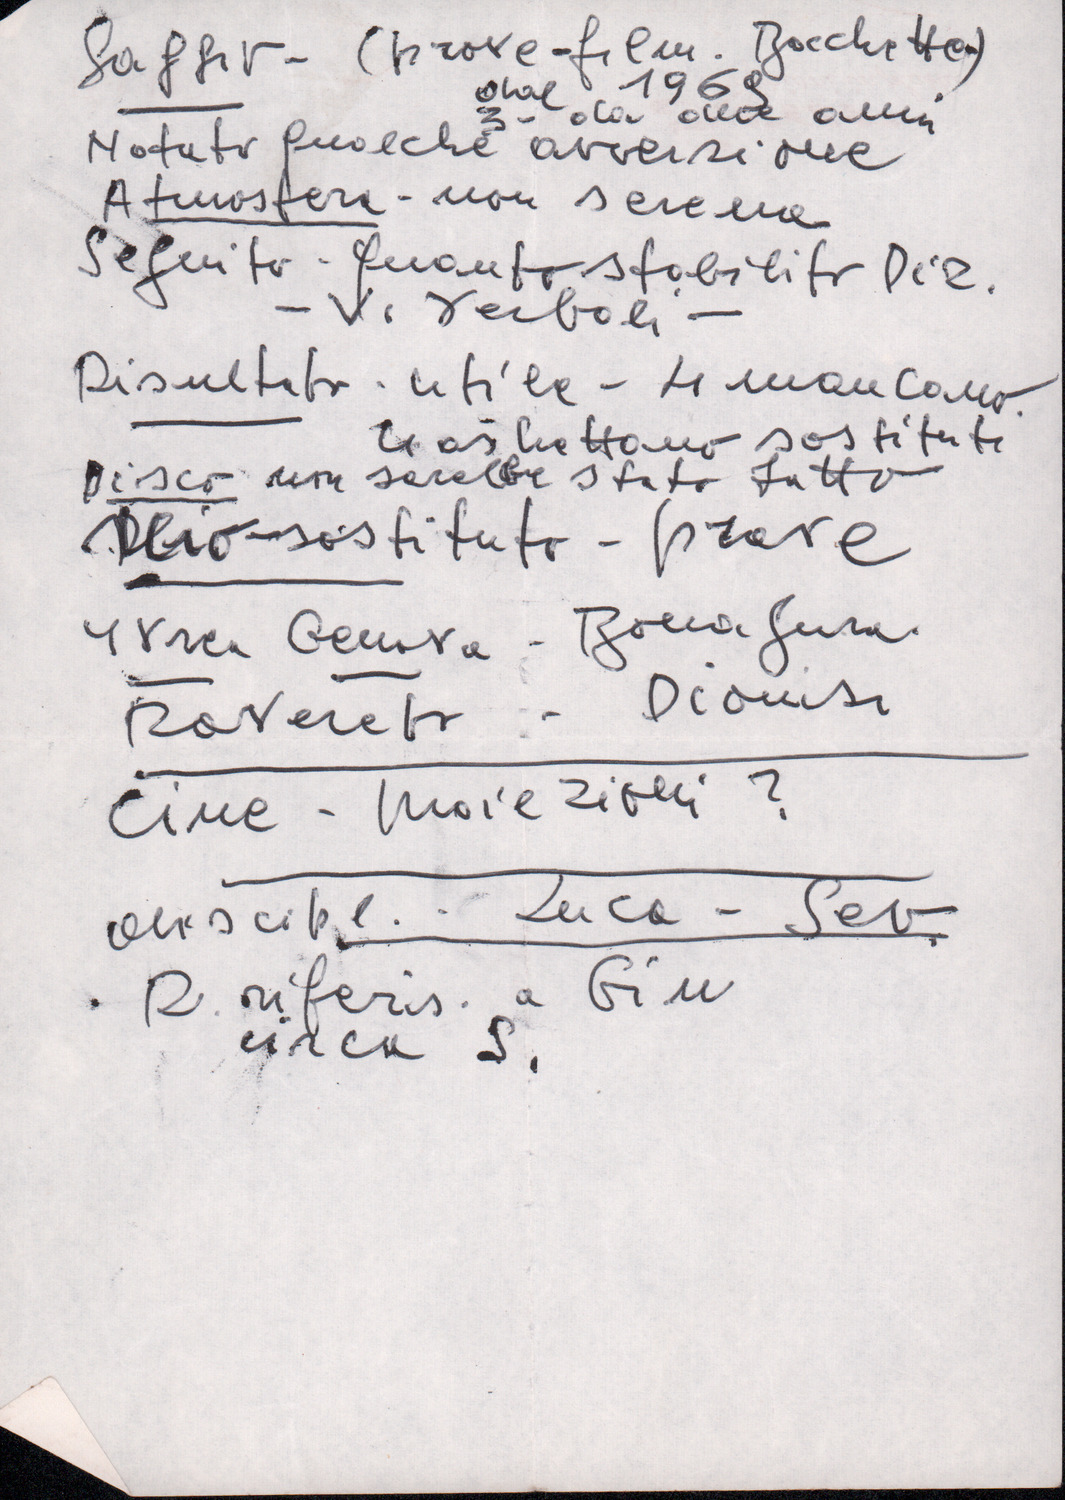 Saggio - (prove-film. Bocchetta)
dal 1968
3 - da due anni
Notato qualche avversione
Atmosfera - non serena
Seguito - quanto stabilito Dir.
- V. Verbali -
Risultato - utile - 4 mancano.
si aspettano sostituti
Disco non sarebbe stato fatto
sostituto - prove
Genova - Bonagura
Rovereto - Dionisi
Cine - proiezioni ?
discipl. - Luca - Sev.
. R. riferis. a Giu
circa S.